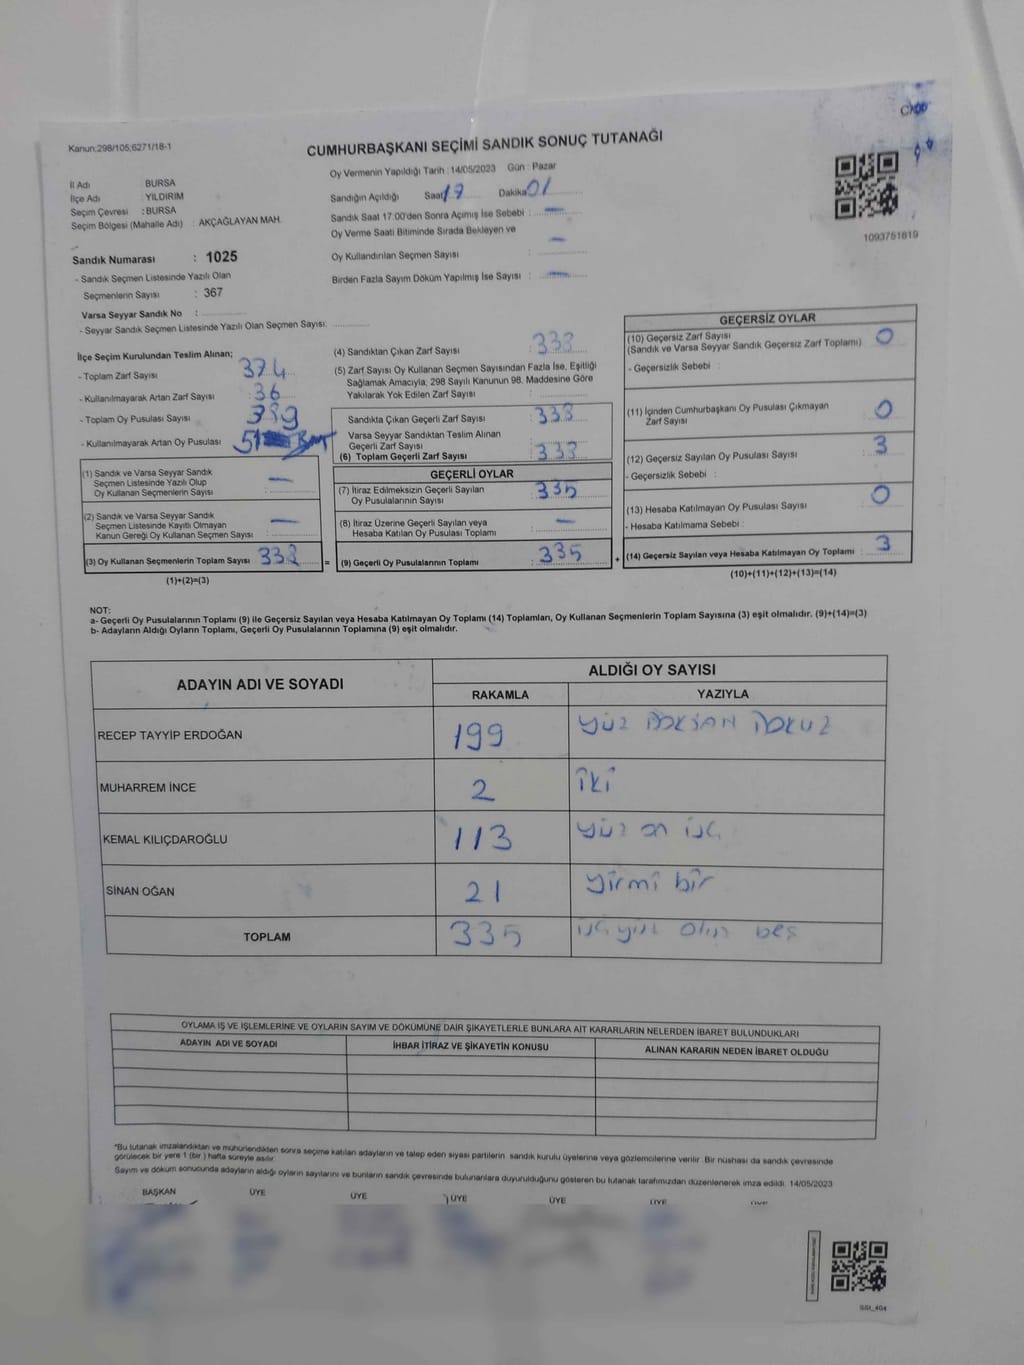 Kanun:298/105;6271/18-1
CUMHURBAŞKANI SEÇİMİ SANDIK SONUÇ TUTANAĞI
İl Adı : BURSA
İlçe Adı : YILDIRIM
Seçim Çevresi : BURSA
Seçim Bölgesi (Mahalle Adı) : AKÇAĞLAYAN MAH.
Sandık Numarası : 1025
- Sandık Seçmen Listesinde Yazılı Olan
Seçmenlerin Sayısı : 367
Varsa Seyyar Sandık No :
- Seyyar Sandık Seçmen Listesinde Yazılı Olan Seçmen Sayısı:
Oy Vermenin Yapıldığı Tarih : 14/05/2023 Gün : Pazar
Sandığın Açıldığı Saat 17 Dakika 01
Sandık Saat 17:00'den Sonra Açımış İse Sebebi : —
Oy Verme Saati Bitiminde Sırada Bekleyen ve
Oy Kullandırılan Seçmen Sayısı : —
Birden Fazla Sayım Döküm Yapılmış İse Sayısı : —
1093761819
İlçe Seçim Kurulundan Teslim Alınan;
- Toplam Zarf Sayısı : 374
- Kullanılmayarak Artan Zarf Sayısı : 36
- Toplam Oy Pusulası Sayısı : 389
- Kullanılmayarak Artan Oy Pusulası : 51
(1) Sandık ve Varsa Seyyar Sandık
Seçmen Listesinde Yazılı Olup
Oy Kullanan Seçmenlerin Sayısı : —
(2) Sandık ve Varsa Seyyar Sandık
Seçmen Listesinde Kayıtlı Olmayan
Kanun Gereği Oy Kullanan Seçmen Sayısı : —
(3) Oy Kullanan Seçmenlerin Toplam Sayısı : 338 =
(1)+(2)=(3)
(4) Sandıktan Çıkan Zarf Sayısı : 338
(5) Zarf Sayısı Oy Kullanan Seçmen Sayısından Fazla İse, Eşitliği
Sağlamak Amacıyla, 298 Sayılı Kanunun 98. Maddesine Göre
Yakılarak Yok Edilen Zarf Sayısı :
Sandıkta Çıkan Geçerli Zarf Sayısı : 338
Varsa Seyyar Sandıktan Teslim Alınan
Geçerli Zarf Sayısı :
(6) Toplam Geçerli Zarf Sayısı : 338
GEÇERLİ OYLAR
(7) İtiraz Edilmeksizin Geçerli Sayılan
Oy Pusulalarının Sayısı : 335
(8) İtiraz Üzerine Geçerli Sayılan veya
Hesaba Katılan Oy Pusulası Toplamı : —
(9) Geçerli Oy Pusulalarının Toplamı : 335 +
GEÇERSİZ OYLAR
(10) Geçersiz Zarf Sayısı : 0
(Sandık ve Varsa Seyyar Sandık Geçersiz Zarf Toplamı)
- Geçersizlik Sebebi :
(11) İçinden Cumhurbaşkanı Oy Pusulası Çıkmayan
Zarf Sayısı : 0
(12) Geçersiz Sayılan Oy Pusulası Sayısı : 3
- Geçersizlik Sebebi :
(13) Hesaba Katılmayan Oy Pusulası Sayısı : 0
- Hesaba Katılmama Sebebi :
(14) Geçersiz Sayılan veya Hesaba Katılmayan Oy Toplamı : 3
(10)+(11)+(12)+(13)=(14)
NOT:
a- Geçerli Oy Pusulalarının Toplamı (9) ile Geçersiz Sayılan veya Hesaba Katılmayan Oy Toplamı (14) Toplamları, Oy Kullanan Seçmenlerin Toplam Sayısına (3) eşit olmalıdır. (9)+(14)=(3)
b- Adayların Aldığı Oyların Toplamı, Geçerli Oy Pusulalarının Toplamına (9) eşit olmalıdır.
ADAYIN ADI VE SOYADI ALDIĞI OY SAYISI
RAKAMLA YAZIYLA
RECEP TAYYİP ERDOĞAN 199 yüz DOKSAN DOKUZ
MUHARREM İNCE 2 iki
KEMAL KILIÇDAROĞLU 113 yüz on üç
SİNAN OĞAN 21 yirmi bir
TOPLAM 335 üç yüz otuz beş
OYLAMA İŞ VE İŞLEMLERİNE VE OYLARIN SAYIM VE DÖKÜMÜNE DAİR ŞİKAYETLERLE BUNLARA AİT KARARLARIN NELERDEN İBARET BULUNDUKLARI
ADAYIN ADI VE SOYADI İHBAR İTİRAZ VE ŞİKAYETİN KONUSU ALINAN KARARIN NEDEN İBARET OLDUĞU
*Bu tutanak imzalandıktan ve mühürlendikten sonra seçime katılan adayların ve talep eden siyasi partilerin sandık kurulu üyelerine veya gözlemcilerine verilir. Bir nüshası da sandık çevresinde
görülecek bir yere 1 (bir) hafta süreyle asılır.
Sayım ve döküm sonucunda adayların aldığı oyların sayılarını ve bunların sandık çevresinde bulunanlara duyurulduğunu gösteren bu tutanak tarafımızdan düzenlenerek imza edildi. 14/05/2023
BAŞKAN ÜYE ÜYE ÜYE ÜYE ÜYE ÜYE